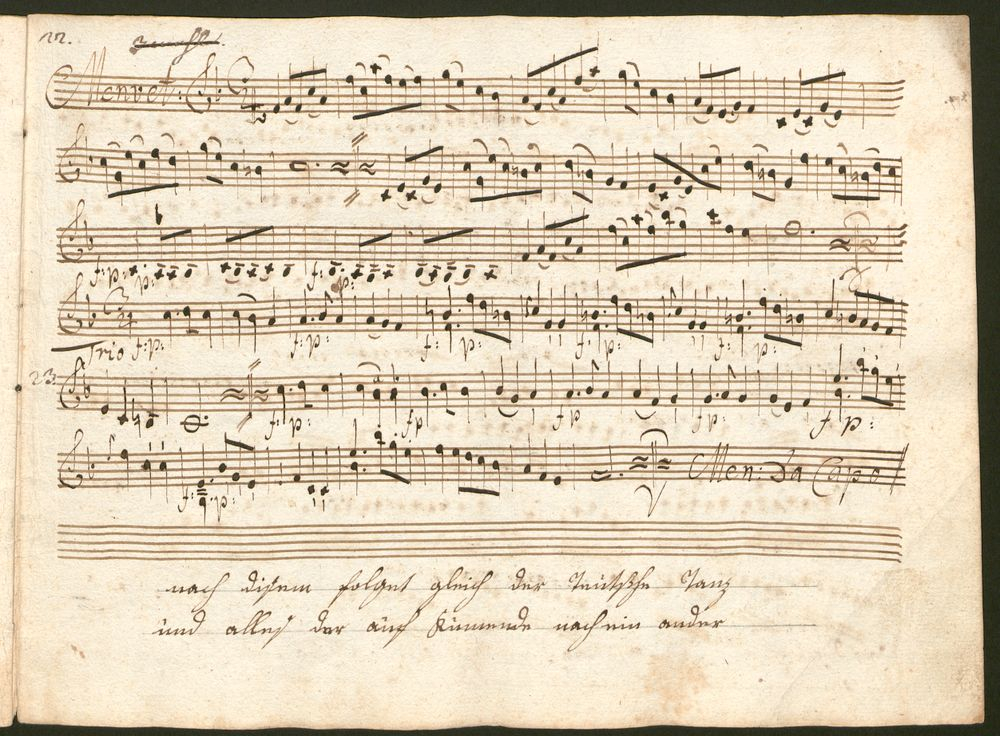 22.
Menvet:
f: p: p: f: p:
Trio f: p: f: p: f: p: f: p: f: p:
23.
f: p: f p f p f: p: f p:
f: p: Men: Da Capo
nach disem folget gleich der Teutsche Tanz
und alles der auf Kumende nach ein ander